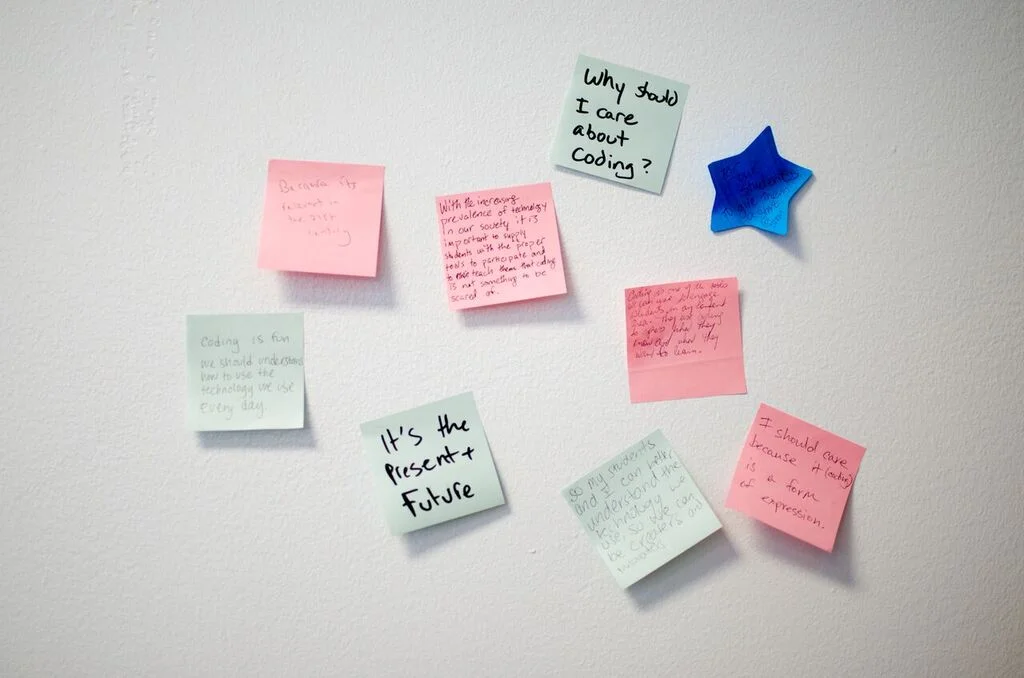 Why should
I care
about
Coding?
Because it's
relevant in
the 21st
century
With the increasing
prevalence of technology
in our society it is
important to supply
students with the proper
tools to participate and
to teach them that coding
is not something to be
scared of.
students
Coding is one of the tools
we can use to engage
students in any content
area. they use coding
to express what they
know and what they
want to learn.
Coding is fun
we should understand
how to use the
technology we use
every day.
It's the
present +
Future
So my students
and I can better
understand the
technology we
use, so we can
be creators and
I should care
because it (coding)
is a form
of expression.